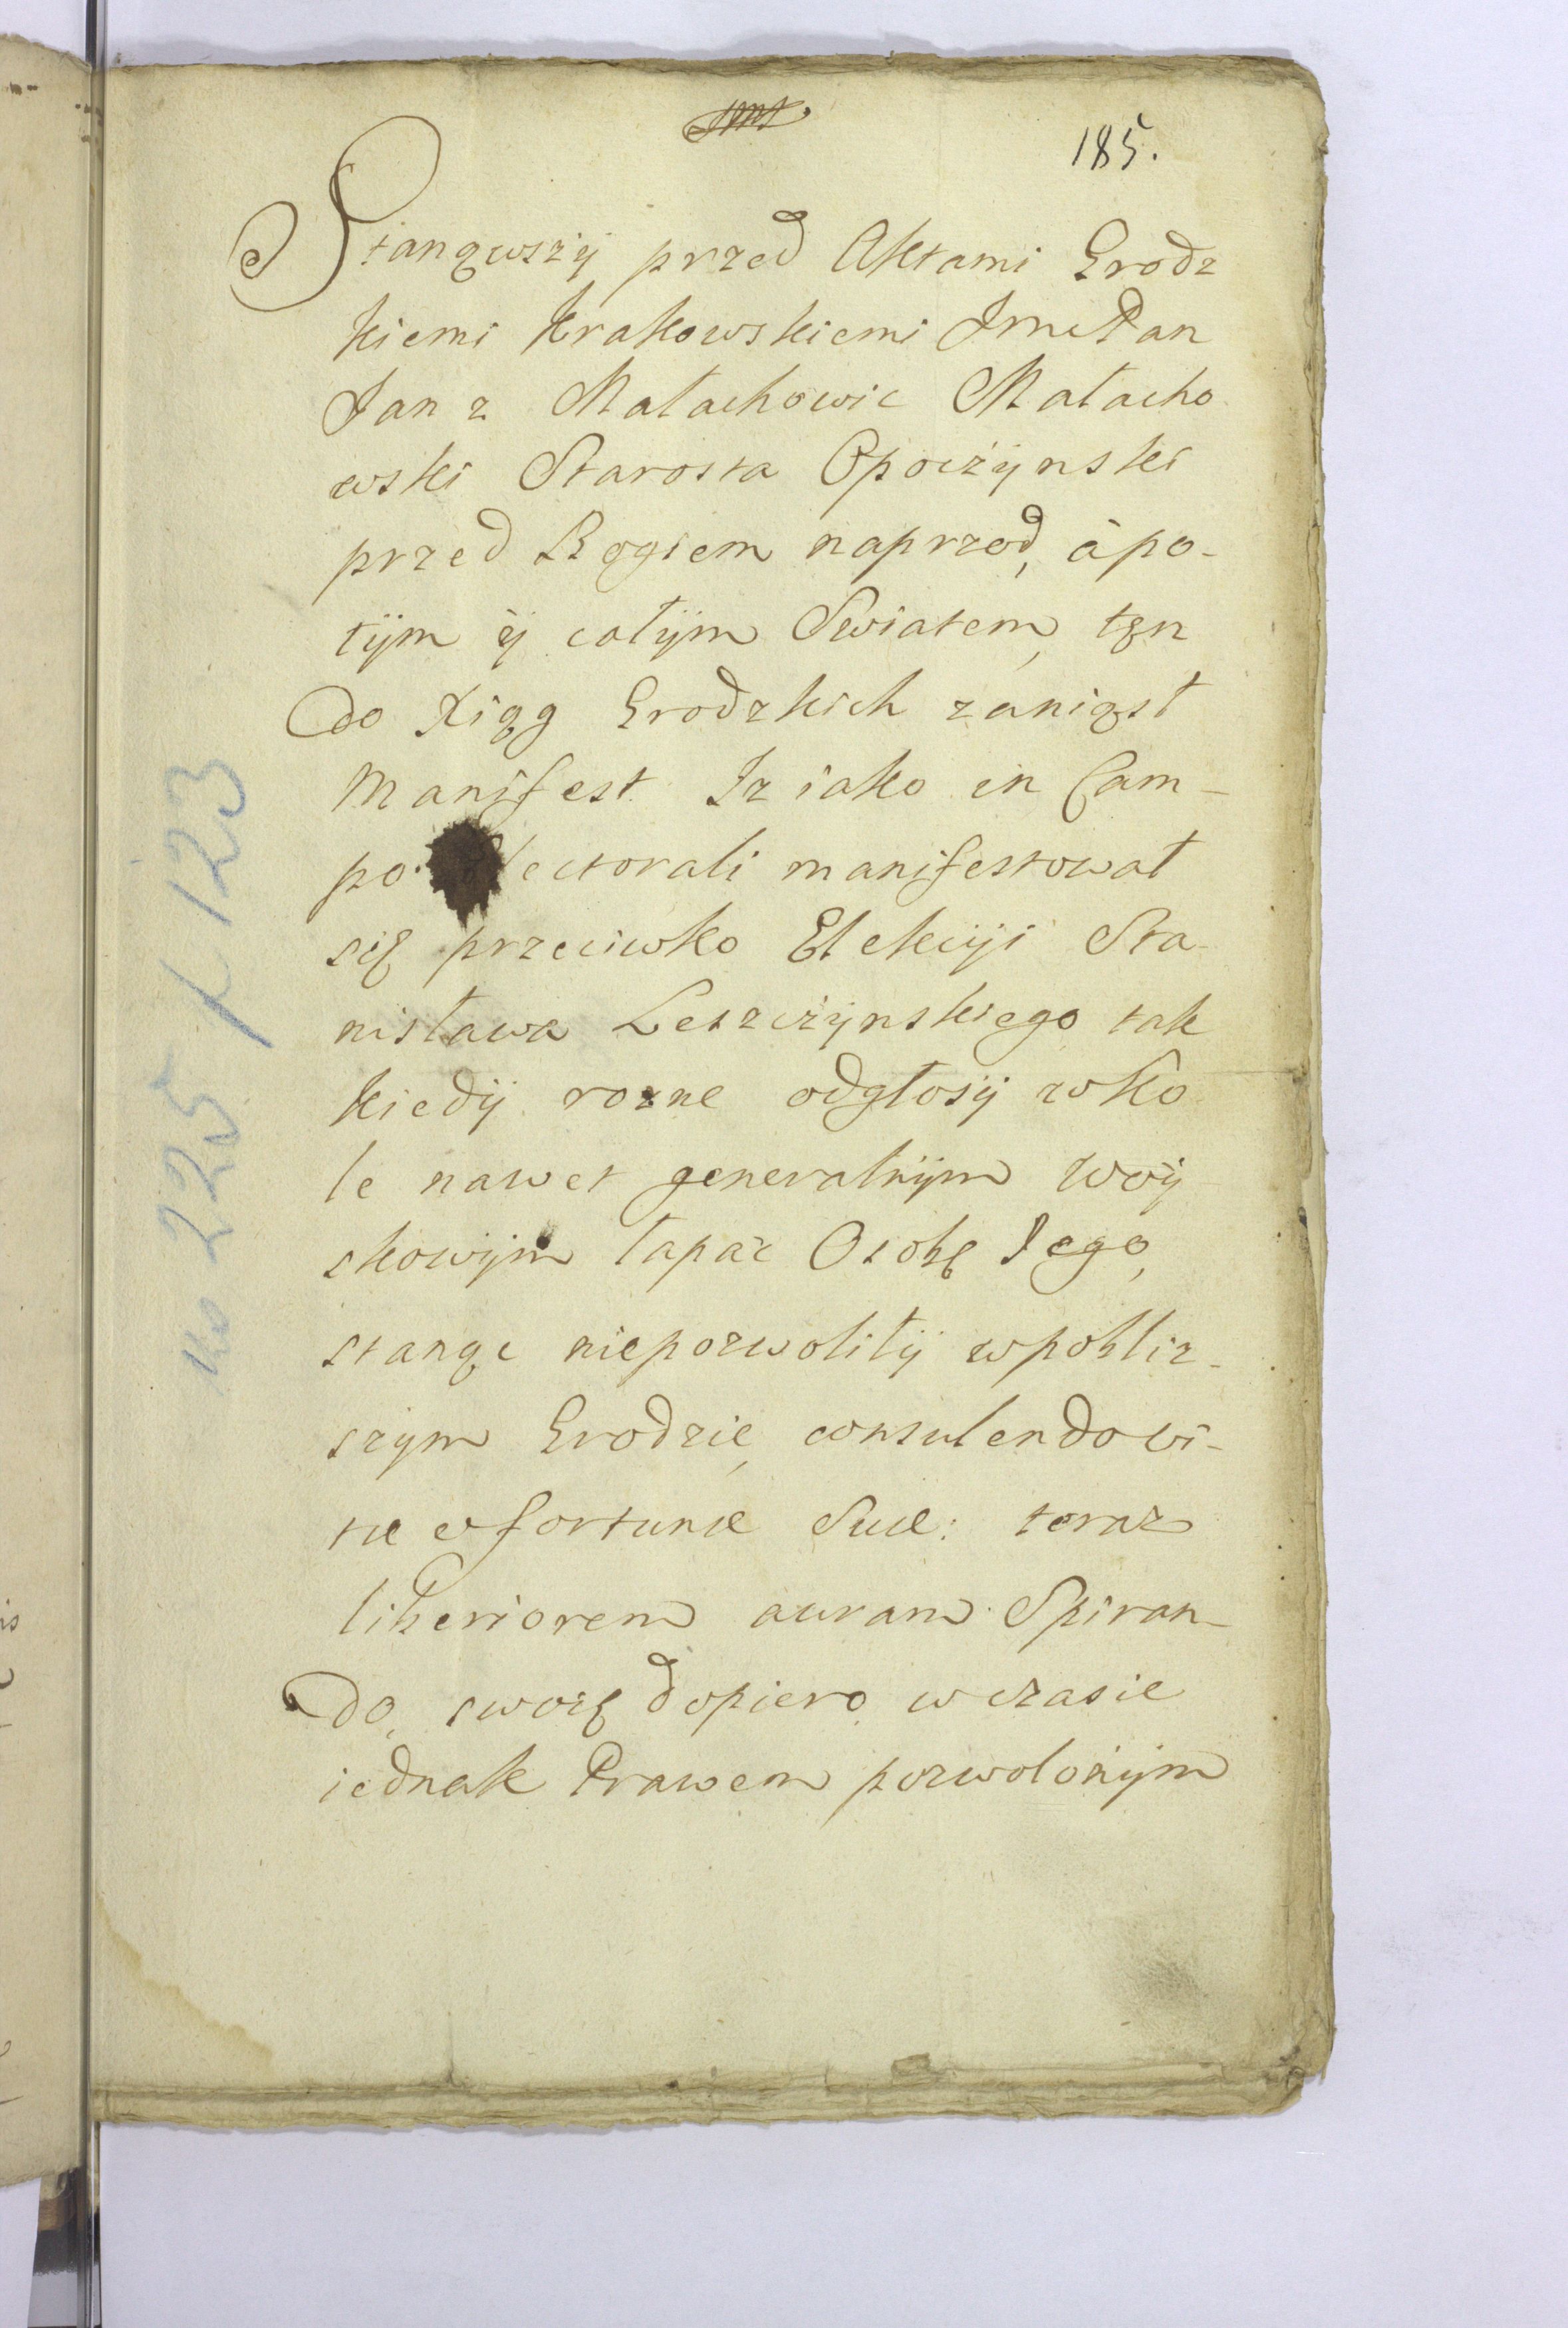 185.
Stanąwszÿ przed Aktami Grodz
kiemi Krakowskiemi JmcPan
Jan z Małachowic Małacho
wski Starosta Opoczÿnski
przed Bogiem naprzod, à po-
tÿm ÿ całÿm Swiatem, tęn
do Xiąg Grodzkich zaniąsł
Manifest. Iz iako in Cam-
po Electorali manifestował
się przeciwko Elekcÿi Sta-
nisława Leszczÿnskiego tak
kiedÿ rozne odgłosÿ w ko
le nawet generalnÿm woÿ
skowÿm łapać Osobę Jego,
stanąc niepozwoliłÿ w pobliz-
szym Grodzie, consulendo vi-
tæ et fortunæ Suæ: teraz
liberiorem auram Spiran-
do, swoię dopiero w czasie
iednak Prawem pozwolonÿm
No 225 k 123